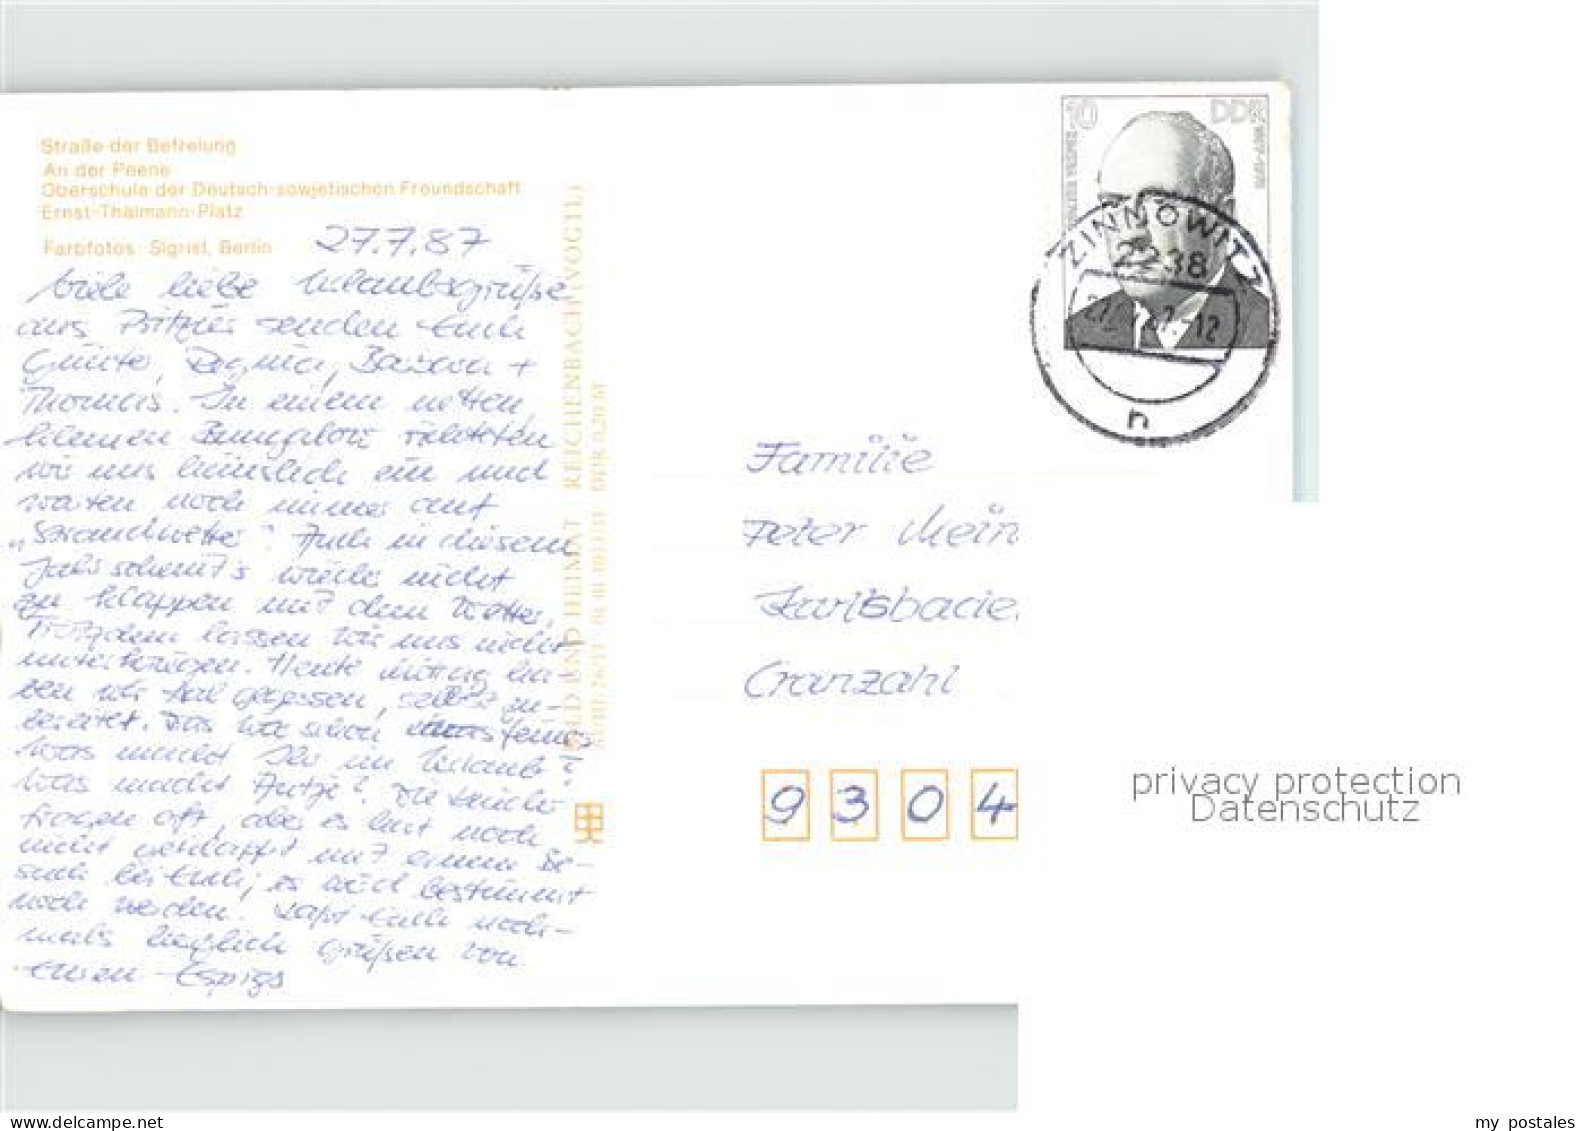 Straße der Befreiung
An der Peene
Oberschule der Deutsch-sowjetischen Freundschaft
Ernst-Thälmann-Platz
Farbfotos: Sigrist, Berlin
27.7.87
Viele liebe Urlaubsgrüße
aus senden Euch
Regina, +
Thomas. In einem netten,
kleinen Bungalow richteten
wir uns häuslich ein und
warten noch immer auf
„Strandwetter“. Auch in diesem
Jahr scheint's wieder nicht
zu klappen mit dem Wetter.
Trotzdem lassen wir uns nicht
unterkriegen. Heute mittag ha-
ben wir Aal gegessen, selbst zu-
bereitet. Das war schon was feines
Was macht Ihr im Urlaub?
Was macht Antje? Die Kinder
fragen oft, aber es hat noch
nicht geklappt mit einem Be-
such bei Euch, es wird bestimmt
noch werden. Laßt Euch noch-
mals herzlich grüßen von
Euren Espigs
BILD UND HEIMAT REICHENBACH (VOGTL)
DDR 0,20 M
10 DDR
ZINNOWITZ
2238
n
Familie
Peter Mein
Cranzahl
9 3 0 4
privacy protection
Datenschutz
my postales